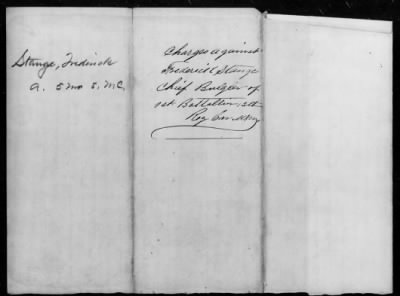 Stange, Fredrick
a. 5 Mo S. M.C.
Charges against
Frederick Stange
Chief Bugler of
1st Battalion, 5th
Reg Cav. M